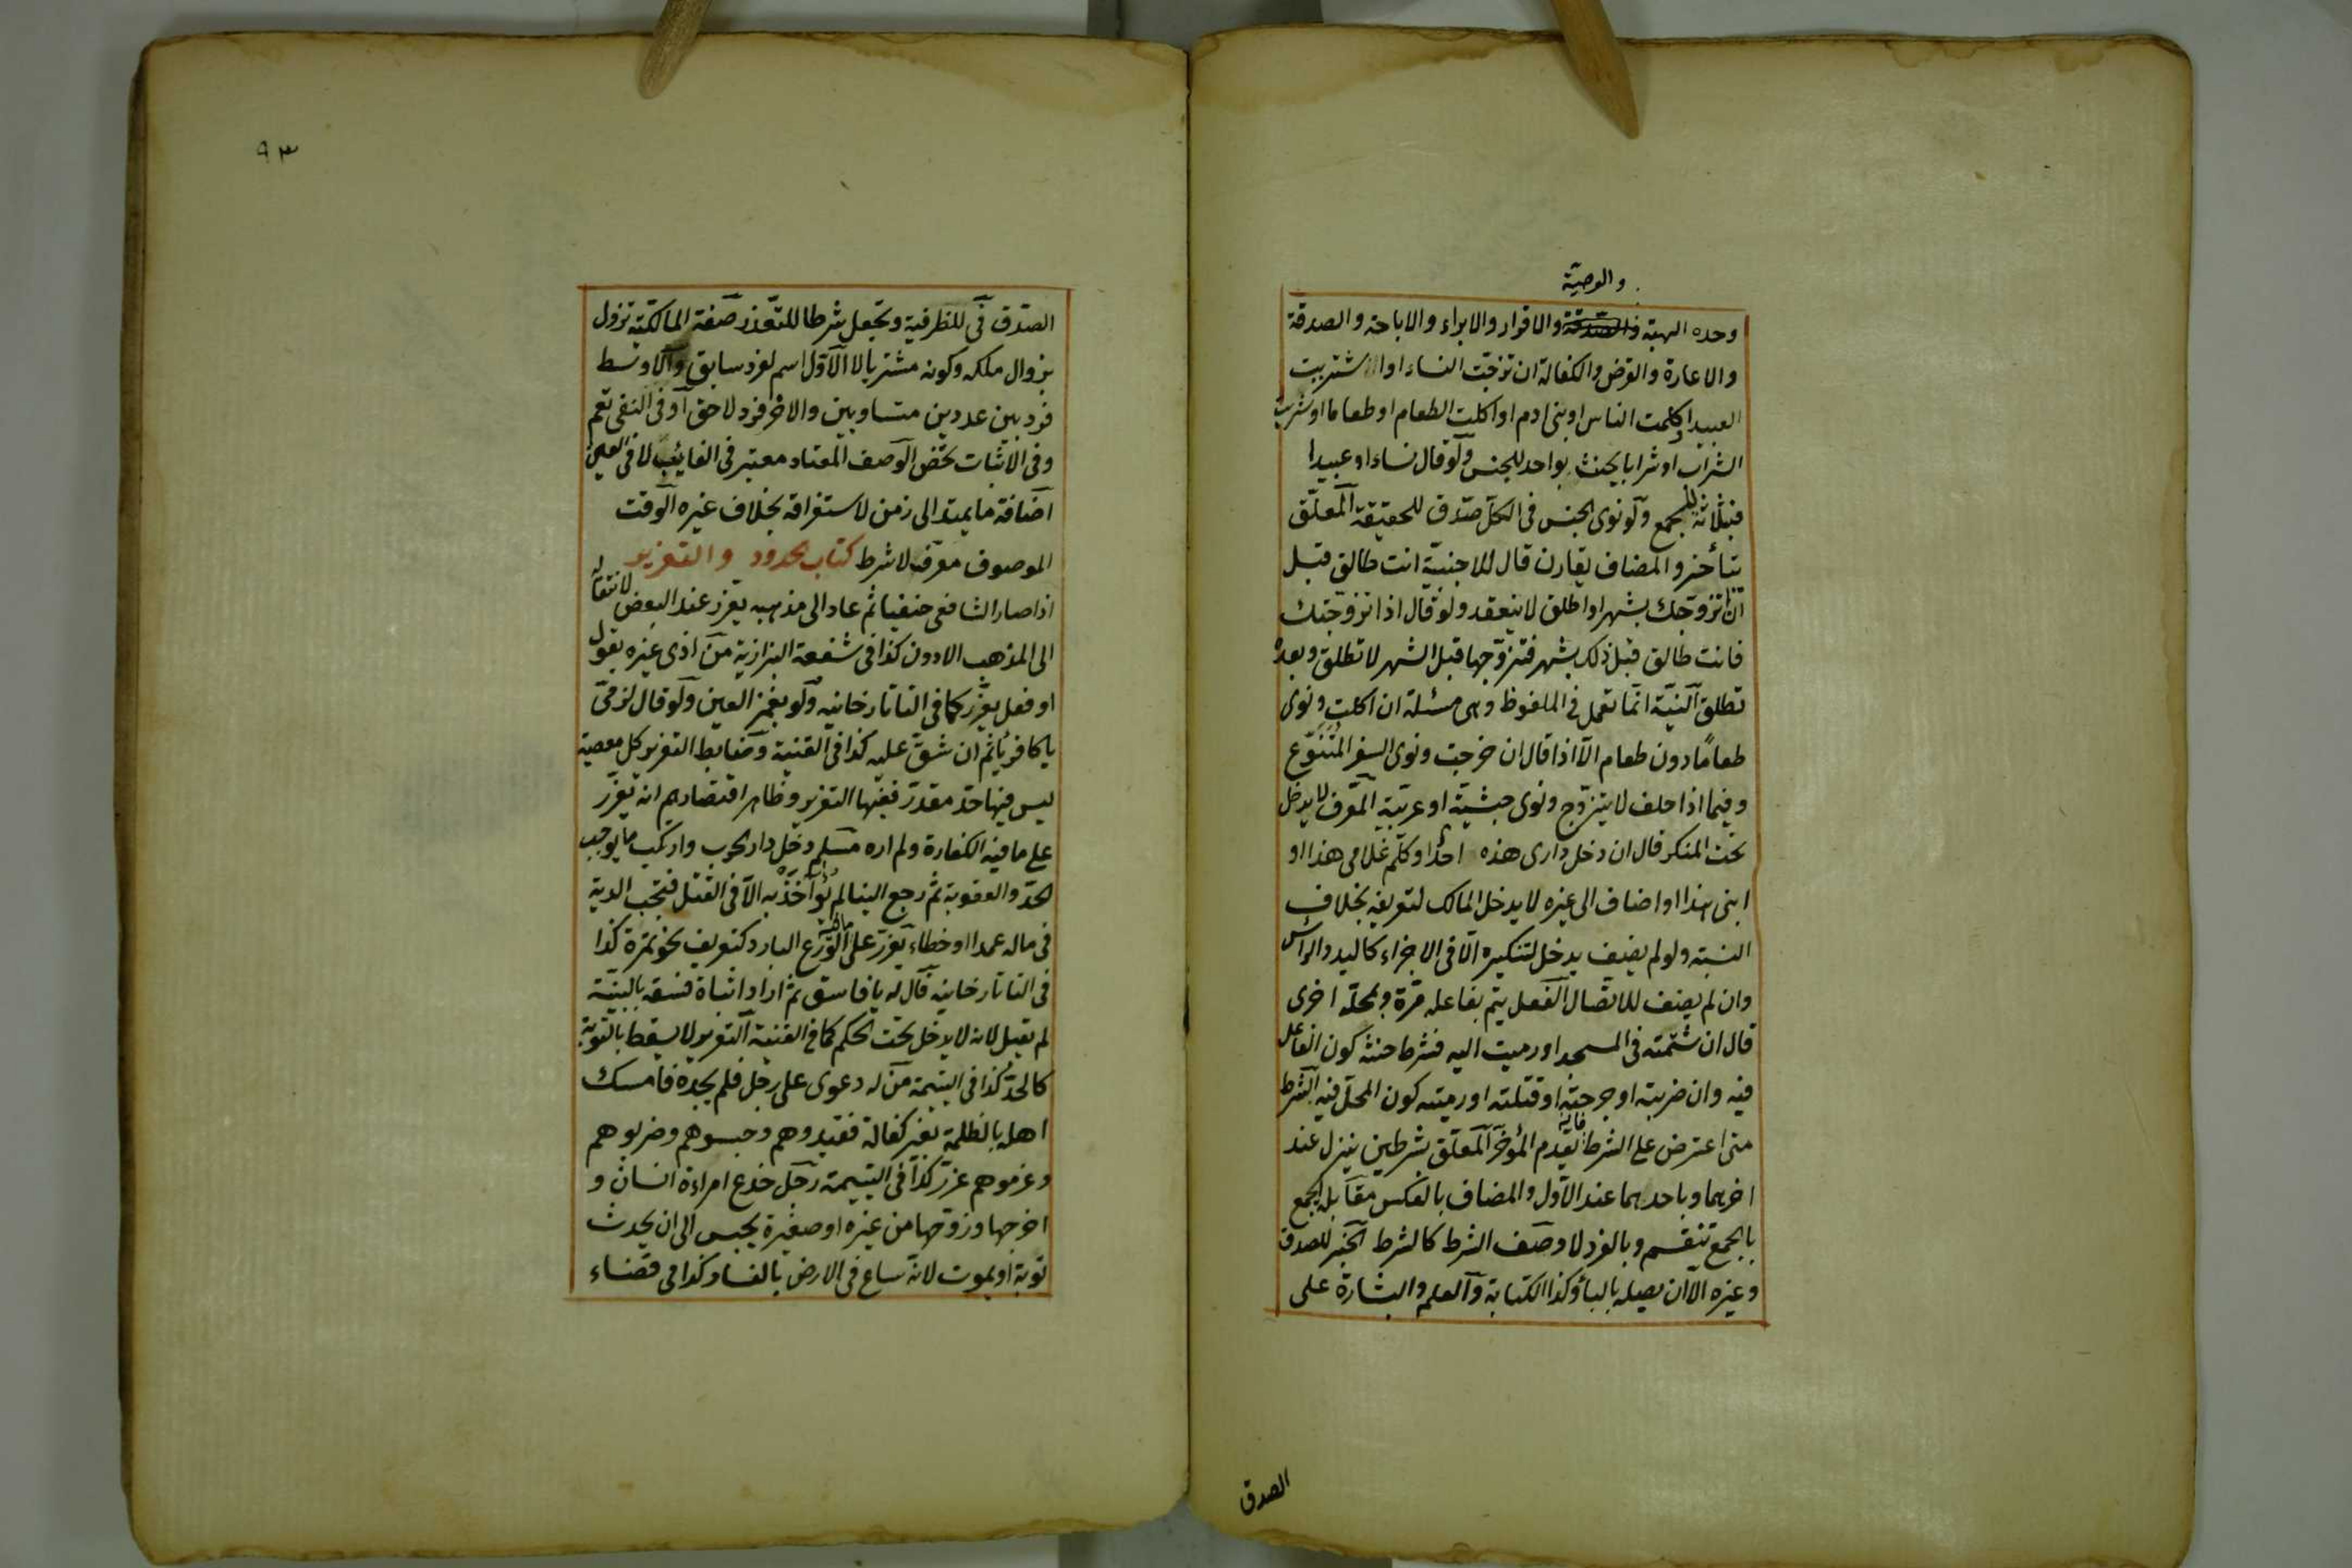 والوصية
وحده الهبة والاقرار والابراء والاباحة والصدقة
والاعارة والقرض والكفالة ان تزوجت النساء او اشتريت
العبيد او كلمت الناس او بنى ادم او اكلت الطعام او طعاما او شربت
الشراب او شرابا يحنث بواحد للجنس ولو قال نساء او عبيدا
فبثلاثة للجمع ولو نوى الجنس فى الكل صدق للحقيقة المعلق
يتأخر والمضاف يقارن قال للاجنبية انت طالق قبل
ان اتزوجك بشهر او اطلق لا ينعقد ولو قال اذا تزوجتك
فانت طالق قبل ذلك بشهر فتزوجها قبل الشهر لا تطلق وبعده
تطلق النية انما تعمل فى الملفوظ وهى مسئلة ان اكلت ونوى
طعاما دون طعام الا اذا قال ان خرجت ونوى السفر المتنوع
وفيما اذا حلف لا يتزوج ونوى حبشية او عربية المعرف لا يدخل
تحت المنكر قال ان دخل دارى هذه احد او كلم غلامى هذا او
ابنى هذا او اضاف الى غيره لا يدخل المالك لتعريفه بخلاف
النسبة ولو لم يضف يدخل لتنكيره الا فى الاجزاء كاليد والراس
وان لم يضف للاتصال الفعل يتم بفاعله مرة وبمحله اخرى
قال ان شتمته فى المسجد او رميت اليه فشرط حنثه كون الفاعل
فيه وان ضربته او جرحته او قتلته او رميته كون المحل فيه الشرط
متى اعترض على الشرط يقدم المؤخر المعلق بشرطين ينزل عند
اخرهما وباحدهما عند الاول والمضاف بالعكس مقابلة الجمع
بالجمع تنقسم وبالفرد لا وصف الشرط كالشرط الخبر للصدق
وغيره الا ان يصله بالباء وكذا الكتابة والعلم والبشارة على
الصدق
٩٣
الصدق فى للظرفية وتجعل شرطا للتعذر صفة المالكية تزول
بزوال ملكه وكونه مشتريا لا الاول اسم لفرد سابق والاوسط
فرد بين عددين متساويين والاخر فرد لاحق او فى النفى تعم
وفى الاثبات تخص الوصف المعتاد معتبر فى الغائب لا فى العين
اضافة ما يمتد الى زمن لاستغراقه بخلاف غيره الوقت
الموصوف معرف لا شرط كتاب الحدود والتعزير
اذا صار الشافعى حنفيا ثم عاد الى مذهبه يعزر عند البعض لانتقاله
الى المذهب الادون كذا فى شفعة البزازية من اذى غيره بقول
او فعل يعزر كما فى التاتارخانيه ولو بغمز العين ولو قال لذمى
يا كافر يأثم ان شق عليه كذا فى القنية وضابط التعزير كل معصية
ليس فيها حد مقدر ففيها التعزير وظاهر اقتصارهم انه يعزر
على ما فيه الكفارة ولم اره مسلم دخل دار الحرب وارتكب ما يوجب
الحد والعقوبة ثم رجع الينا لم يؤاخذ به الا فى القتل فتجب الدية
فى ماله عمدا او خطاء يعزر على الورع البارد كتعريف نحو تمرة كذا
فى التاتارخانيه قال له يا فاسق ثم اراد اثباة فسقه بالبينة
لم تقبل لانه لا يدخل تحت الحكم كما فى القنية التعزير لا يسقط بالتوبة
كالحد كذا فى اليتيمة من له دعوى على رجل فلم يجده فامسك
اهله بالظلمة بغير كفالة فقيدوهم وحبسوهم وضربوهم
وغرموهم عزر كذا فى اليتيمة رجل خدع امراءة انسان و
اخرجها وزوجها من غيره او صغيرة يحبس الى ان يحدث
توبة او يموت لانه ساع فى الارض بالفساد كذا فى قضاء